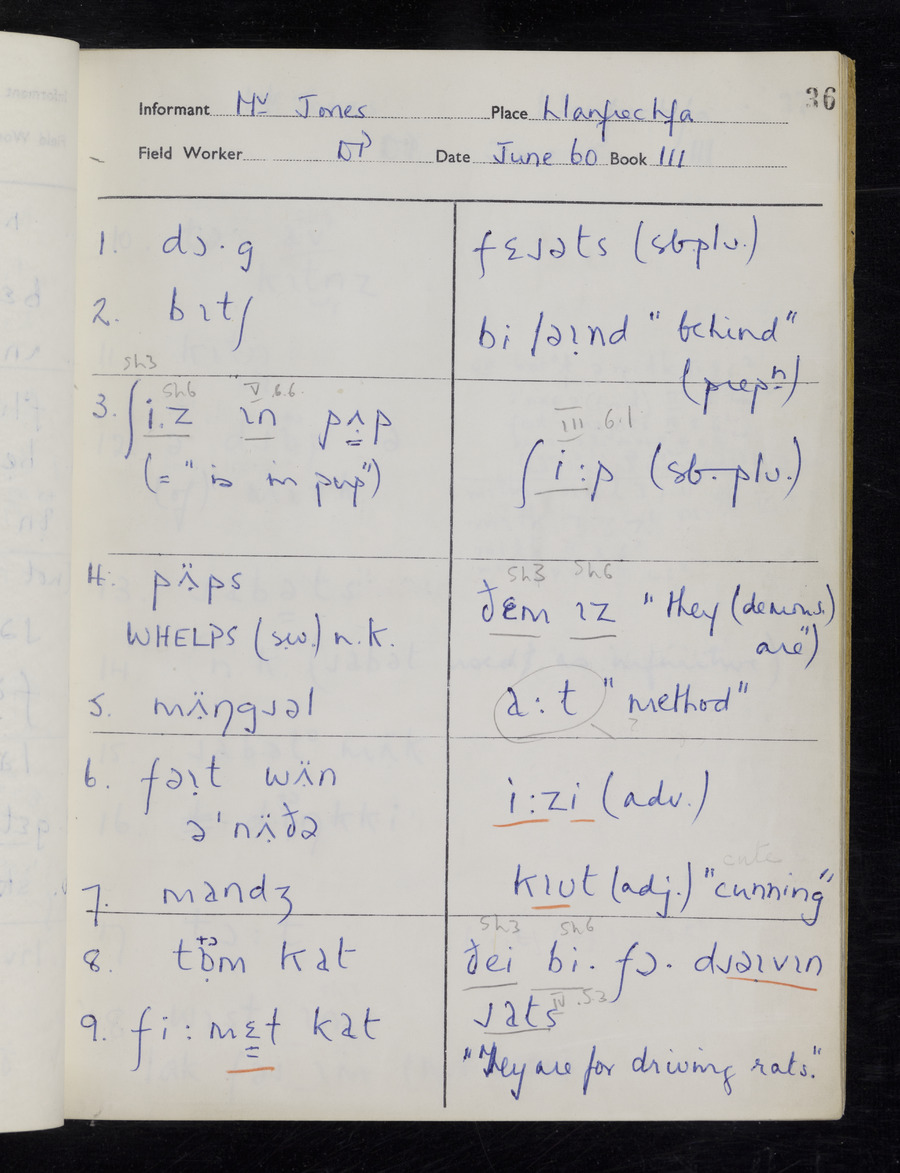 36
Informant Mr Jones Place Llanfrechfa
Field Worker DP Date June 60 Book III
1. dɔ·g
2. bɪtʃ
sh3
sh6 V.6.6.
3. ʃi.z ɪn pʌ̈p
(= "is in pup")
4. pʌ̈ps
WHELPS (sw.) n.k.
5. mʌ̈ŋgɹəl
6. fəɪt wʌ̈n
ə'nʌ̈ðə
7. mandʒ
8. tɒm kat
9. fi:mɛt kat
fɛɹəts (sb.plu.)
bi/əɪnd "behind"
(prepn)
III.6.1
ʃi:p (sb.plu.)
sh3 sh6
ðɛm ɪz "they (demons.)
are")
a:t "method"
?
i:zi (adv.)
cute
kɪʊt (adj.) "cunning"
sh3 sh6
ðei bi. fɔ. dɹəɪvɪn
ɹats IV.53
"They are for driving rats."